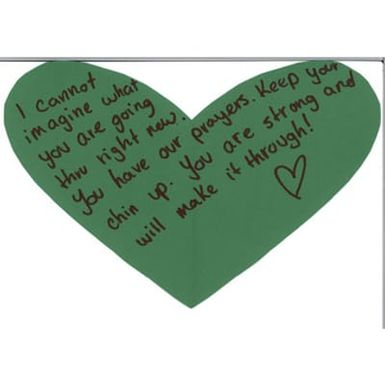 I cannot
imagine what
you are going
thru right now.
You have our prayers. Keep your
chin up. You are strong and
will make it through!